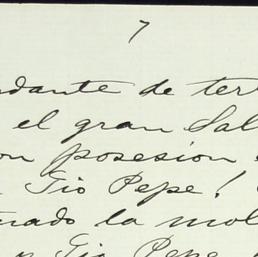 7
ndante de ter
el gran Sal
on posesion
Tio Pepe!
rado la mol
Tio Pepe